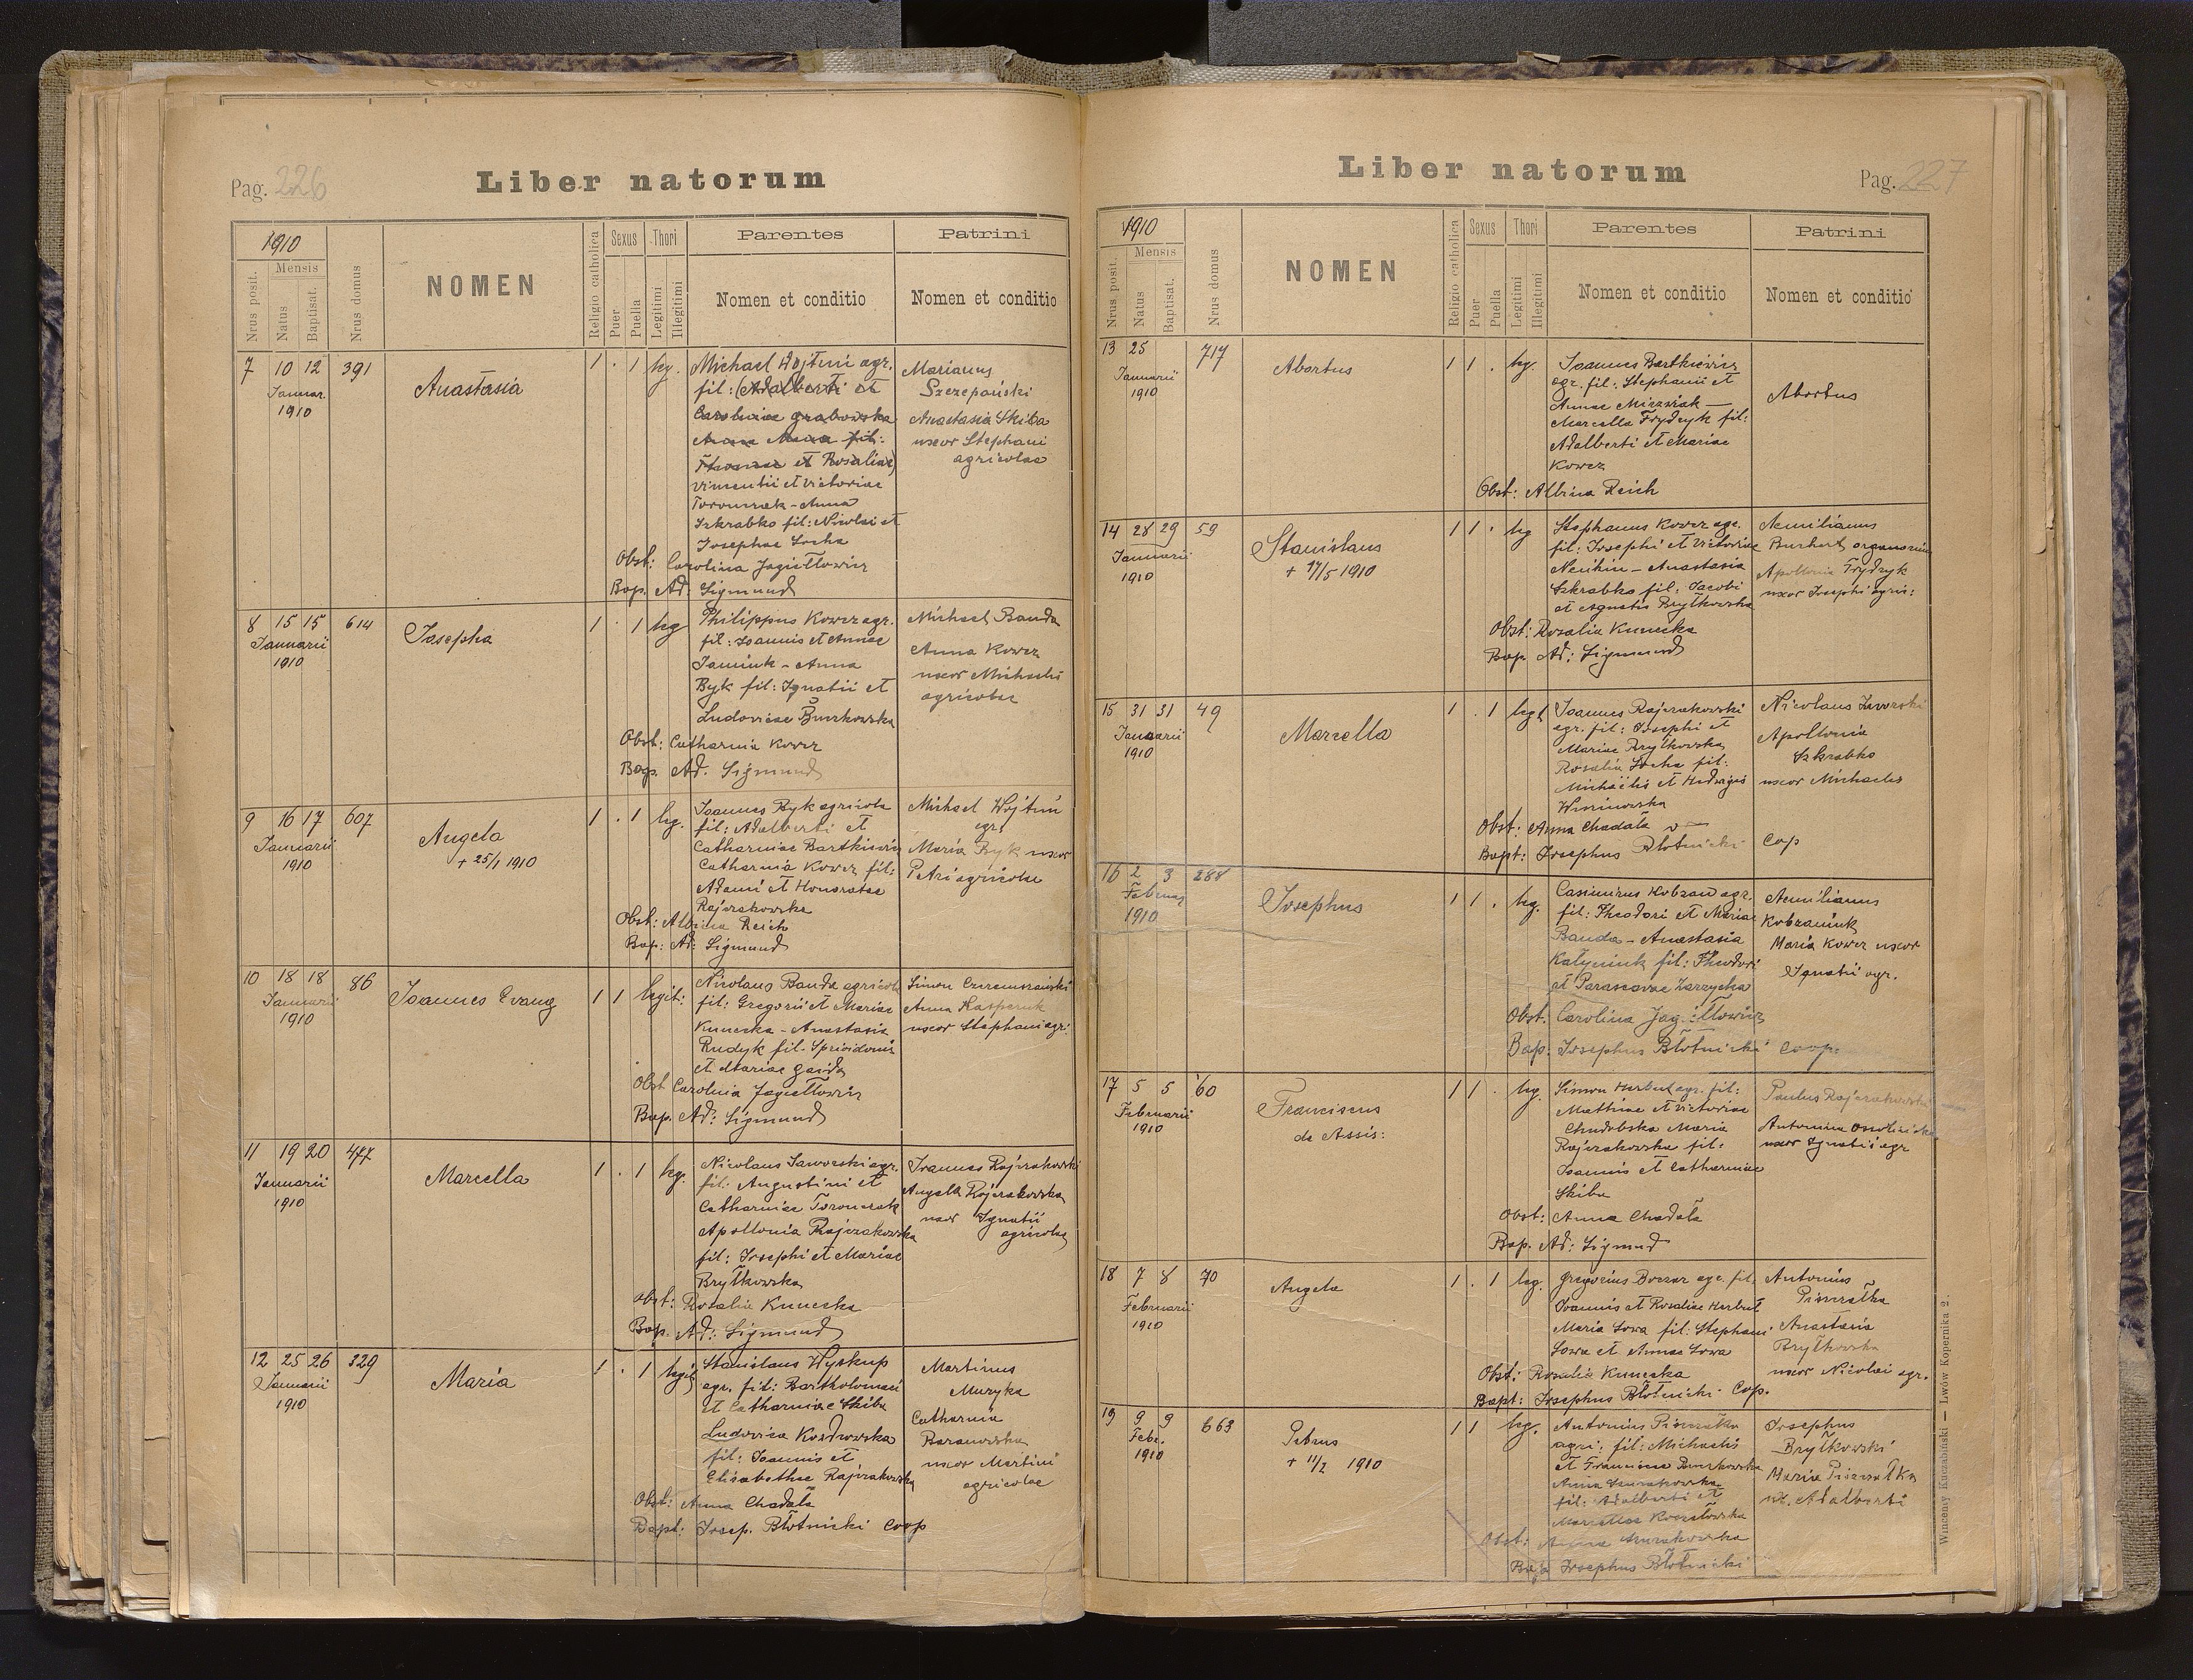 Pag. 226
Liber natorum
1910
Mensis
Nrus posit.
Natus
Baptisat.
Nrus domus
NOMEN
Religio catholica
Sexus
Puer
Puella
Thori
Legitimi
Illegitimi
Parentes
Nomen et conditio
Patrini
Nomen et conditio
7 10 12 391
Januar.
1910
Anastasia
1 . 1 leg.
Michael Wojtun agr.
fil: (Adalberti et
Carolinae Grabowska
fil:
Thomae et Rosaliae)
Vincentii et Victoriae
Toronczak - Anna
Szkrabko fil: Nicolai et
Josephae Socha
Marianus
Szczepański
Anastasia Skiba
uxor Stephani
agricolae
Obst: Carolina Jagiełłowicz
Bap. Ad: Sigmund
8 15 15 614
Januarii
1910
Josepha
1 . 1 leg
Philippus Kowcz agr.
fil: Joannis et Annae
Janiuk - Anna
Byk fil: Ignatii et
Ludovicae
Michael Banda
Anna Kowcz
uxor Michaelis
agricolae
Obst: Catharina Kowcz
Bap. Ad. Sigmund
9 16 17 607
Januarii
1910
Angela
+ 25/1 1910
1 . 1 leg.
Joannes Byk agricola
fil: Adalberti et
Catharinae Bartkiewicz
Catharina Kowcz fil:
Adami et Honoratae
Rajzakowska
Michael Wojtun
agr.
Maria Byk uxor
Petri agricolae
Obst: Albina Reich
Bap: Ad: Sigmund
10 18 18 86
Januarii
1910
Joannes Evang
1 1 legit:
Nicolaus Banda agricola
fil: Gregorii et Mariae
Kunecka - Anastasia
Rudyk fil. Spiridonis
et Mariae Gaida
Simon
Anna Kasperuk
uxor Stephani agr.
Obst Carolina Jagiełłowicz
Bap. Ad: Sigmund
11 19 20 477
Januarii
1910
Marcella
1 . 1 leg.
Nicolaus Jaworski agr.
fil: Augustini et
Catharinae Toronczak
Apollonia Rajzakowska
fil: Josephi et Mariae
Bryłkowska
Joannes Rajzakowski
Angela Rajzakowska
uxor Ignatii
agricolae
Obst: Rosalia Kunecka
Bap. Ad: Sigmund
12 25 26 329
Januarii
1910
Maria
1 . 1 legit
Stanislaus Wyskup
agr. fil: Bartholomaei
et Catharinae Skiba
Ludovica
fil: Joannis et
Elisabethae Rajzakowska
Martinus
Muzyka
Catharina
Baranowska
uxor Martini
agricolae
Obst: Anna Chadała
Bapt: Josep. Błotnicki Coop
Liber natorum
Pag. 227
1910
Mensis
Nrus posit.
Natus
Baptisat.
Nrus domus
NOMEN
Religio catholica
Sexus
Puer
Puella
Thori
Legitimi
Illegitimi
Parentes
Nomen et conditio
Patrini
Nomen et conditio
13 25 717
Januarii
1910
Abortus
1 1 . leg.
Joannes Bartkiewicz
agr. fil: Stephani et
Annae
Marcella Frydryk fil:
Adalberti et Mariae
Kowcz
Abortus
Obst: Albina Reich
14 28 29 59
Januarii
1910
Stanislaus
+ 17/5 1910
1 1 . leg
Stephanus Kowcz agr.
fil: Josephi et Victoriae
Anastasia
Szkrabko fil: Jacobi
et Agnetis Bryłkowska
Aemilianus
Apollonia Frydryk
uxor Josephi agric:
Obst: Rosalia Kunecka
Bap. Ad: Sigmund
15 31 31 49
Januarii
1910
Marcella
1 . 1 leg
Joannes Rajzakowski
agr. fil: Josephi et
Mariae Bryłkowska
Rosalia Socha fil:
Michaëlis et Hedvigis
Wisniowska
Nicolaus Jaworski
Apollonia
Szkrabko
uxor Michaelis
Obst: Anna Chadała
Bapt: Josephus Błotnicki Cop
16 2 3 288
Februar
1910
Josephus
1 1 . leg.
Casimirus Kobzan agr.
fil: Theodori et Mariae
Banda - Anastasia
Kałyniuk fil: Theodori
et Parascevae Zarzycka
Aemilianus
Kobzaniuk
Maria Kowcz uxor
Ignatii agr.
Obst: Carolina Jagiełłowicz
Bap: Josephus Błotnicki Coop.
17 5 5 60
Februarii
1910
Franciscus
de Assis:
1 1 . leg.
Simon Herbut agr. fil:
Mathiae et Victoriae
Maria
Rajzakowska fil:
Joannis et Catharinae
Skiba
Paulus Rajzakowski
Antonina
uxor Ignatii agr
Obst: Anna Chadała
Bap. Ad: Sigmund
18 7 8 70
Februarii
1910
Angela
1 . 1 leg.
Gregorius agr. fil
Joannis et Rosaliae Herbut
Maria Sowa fil: Stephani
Sowa et Annae Sowa
Antonius
Anastasia
Bryłkowska
uxor Nicolai agr.
Obst: Rosalia Kunecka
Bapt: Josephus Błotnicki Cop.
19 9 9 663
Febr.
1910
Petrus
+ 11/2 1910
1 1 leg.
Antonius
agri: fil: Michaelis
et Franciscae
Anna
fil: Adalberti et
Marcellae
Josephus
Bryłkowski
Maria
ux. Adalberti
Obst: Anna
Bap Josephus Błotnicki
Wincenty Kuczabiński — Lwów Kopernika 2.